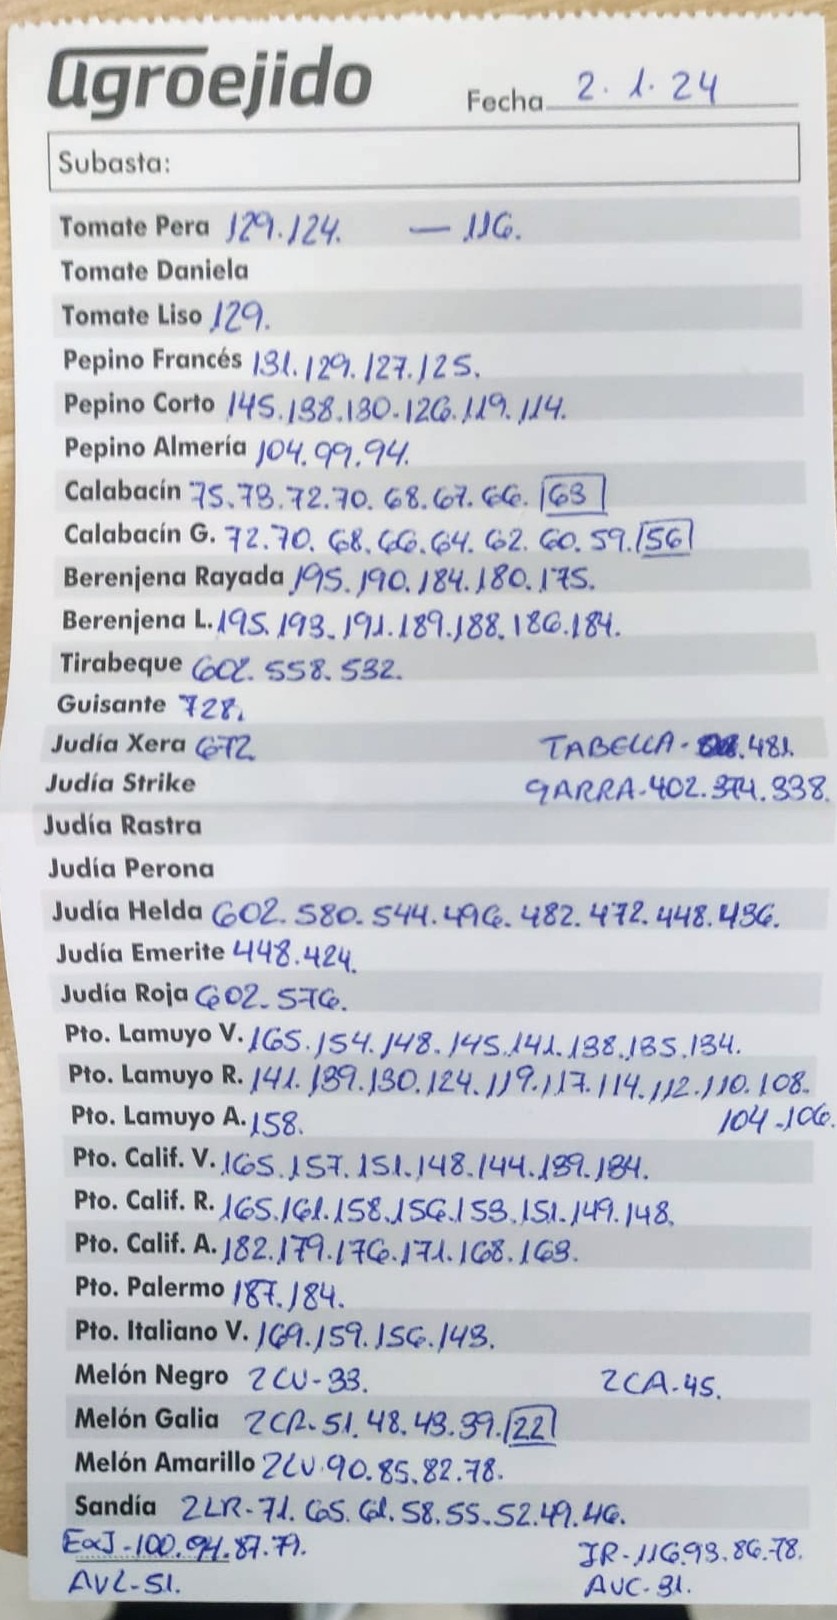 agroejido
Fecha 2.1.24
Subasta:
Tomate Pera 129.124. — 116.
Tomate Daniela
Tomate Liso 129.
Pepino Francés 131.129.127.125.
Pepino Corto 145.138.130.126.119.114.
Pepino Almería 104.99.94.
Calabacín 75.73.72.70.68.67.66.63
Calabacín G. 72.70.68.66.64.62.60.59.56
Berenjena Rayada 195.190.184.180.175.
Berenjena L. 195.193.191.189.188.186.184.
Tirabeque 602.558.532.
Guisante 728.
Judía Xera 672 TABELLA-481.
Judía Strike GARRA-402.374.338.
Judía Rastra
Judía Perona
Judía Helda 602.580.544.496.482.472.448.436.
Judía Emerite 448.424.
Judía Roja 602.576.
Pto. Lamuyo V. 165.154.148.145.141.138.135.134.
Pto. Lamuyo R. 141.139.130.124.119.117.114.112.110.108.
Pto. Lamuyo A. 158. 104.106.
Pto. Calif. V. 165.157.151.148.144.139.134.
Pto. Calif. R. 165.161.158.156.153.151.149.148.
Pto. Calif. A. 182.179.176.171.168.163.
Pto. Palermo 187.184.
Pto. Italiano V. 169.159.156.143.
Melón Negro 2CU-33. 2CA-45.
Melón Galia 2CR-51.48.43.39.22
Melón Amarillo 2LV.90.85.82.78.
Sandía 2LR-71.65.61.58.55.52.49.46.
-100.94.87.79. JR-116.93.86.78.
AVL-51. AUC-31.